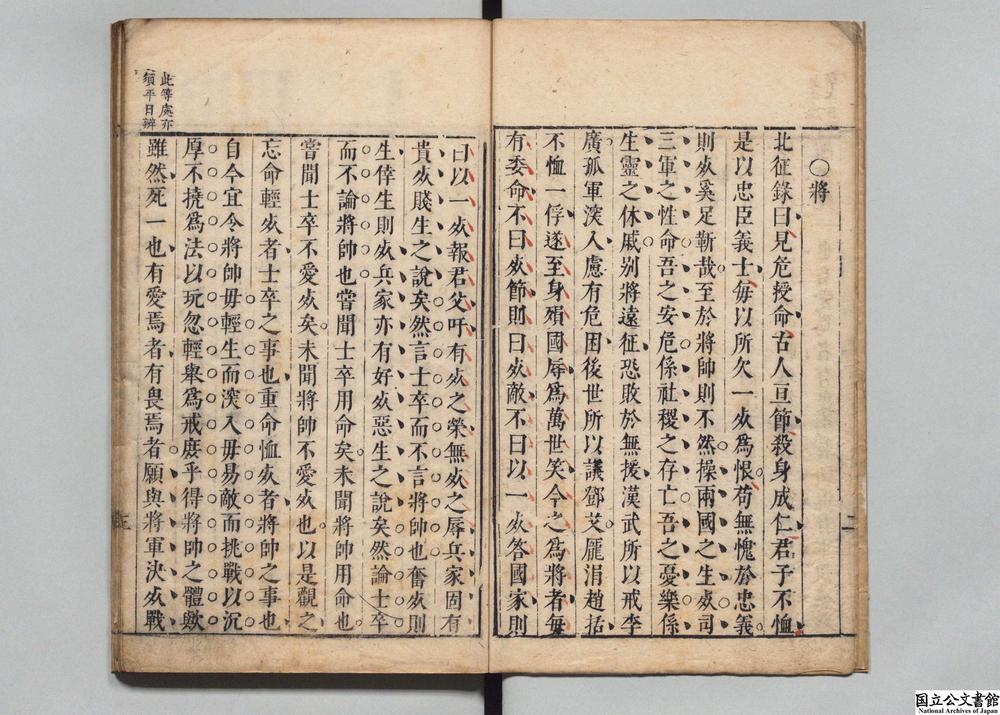 ○將
北征錄曰見危授命古人亘節殺身成仁君子不恤
是以忠臣義士每以所欠一死為恨苟無愧於忠義
則死奚足靳哉至於將帥則不然操兩國之生死司
三軍之性命吾之安危係社稷之存亡吾之憂樂係
生靈之休戚別將遠征恐敗於無援漢武所以戒李
廣孤軍深入慮有危困後世所以議鄧艾龐涓趙括
不恤一俘遂至身殞國辱為萬世笑今之為將者每
有委命不曰死節則曰死敵不曰以一死答國家則
曰以一死報君父吁有死之榮無死之辱兵家固有
貴死賤生之說矣然言士卒而不言將帥也奮死則
生倖生則死兵家亦有好死惡生之說矣然論士卒
而不論將帥也嘗聞士卒用命矣未聞將帥用命也
嘗聞士卒不愛死矣未聞將帥不愛死也以是觀之
忘命輕死者士卒之事也重命恤死者將帥之事也
自今宜令將帥毋輕生而深入毋易敵而挑戰以沉
厚不撓為法以玩忽輕舉為戒庶乎得將帥之體歟
雖然死一也有愛焉者有畏焉者願與將軍決死戰
此等處亦
須平日辨
二
國立公文書館
National Archives of Japan